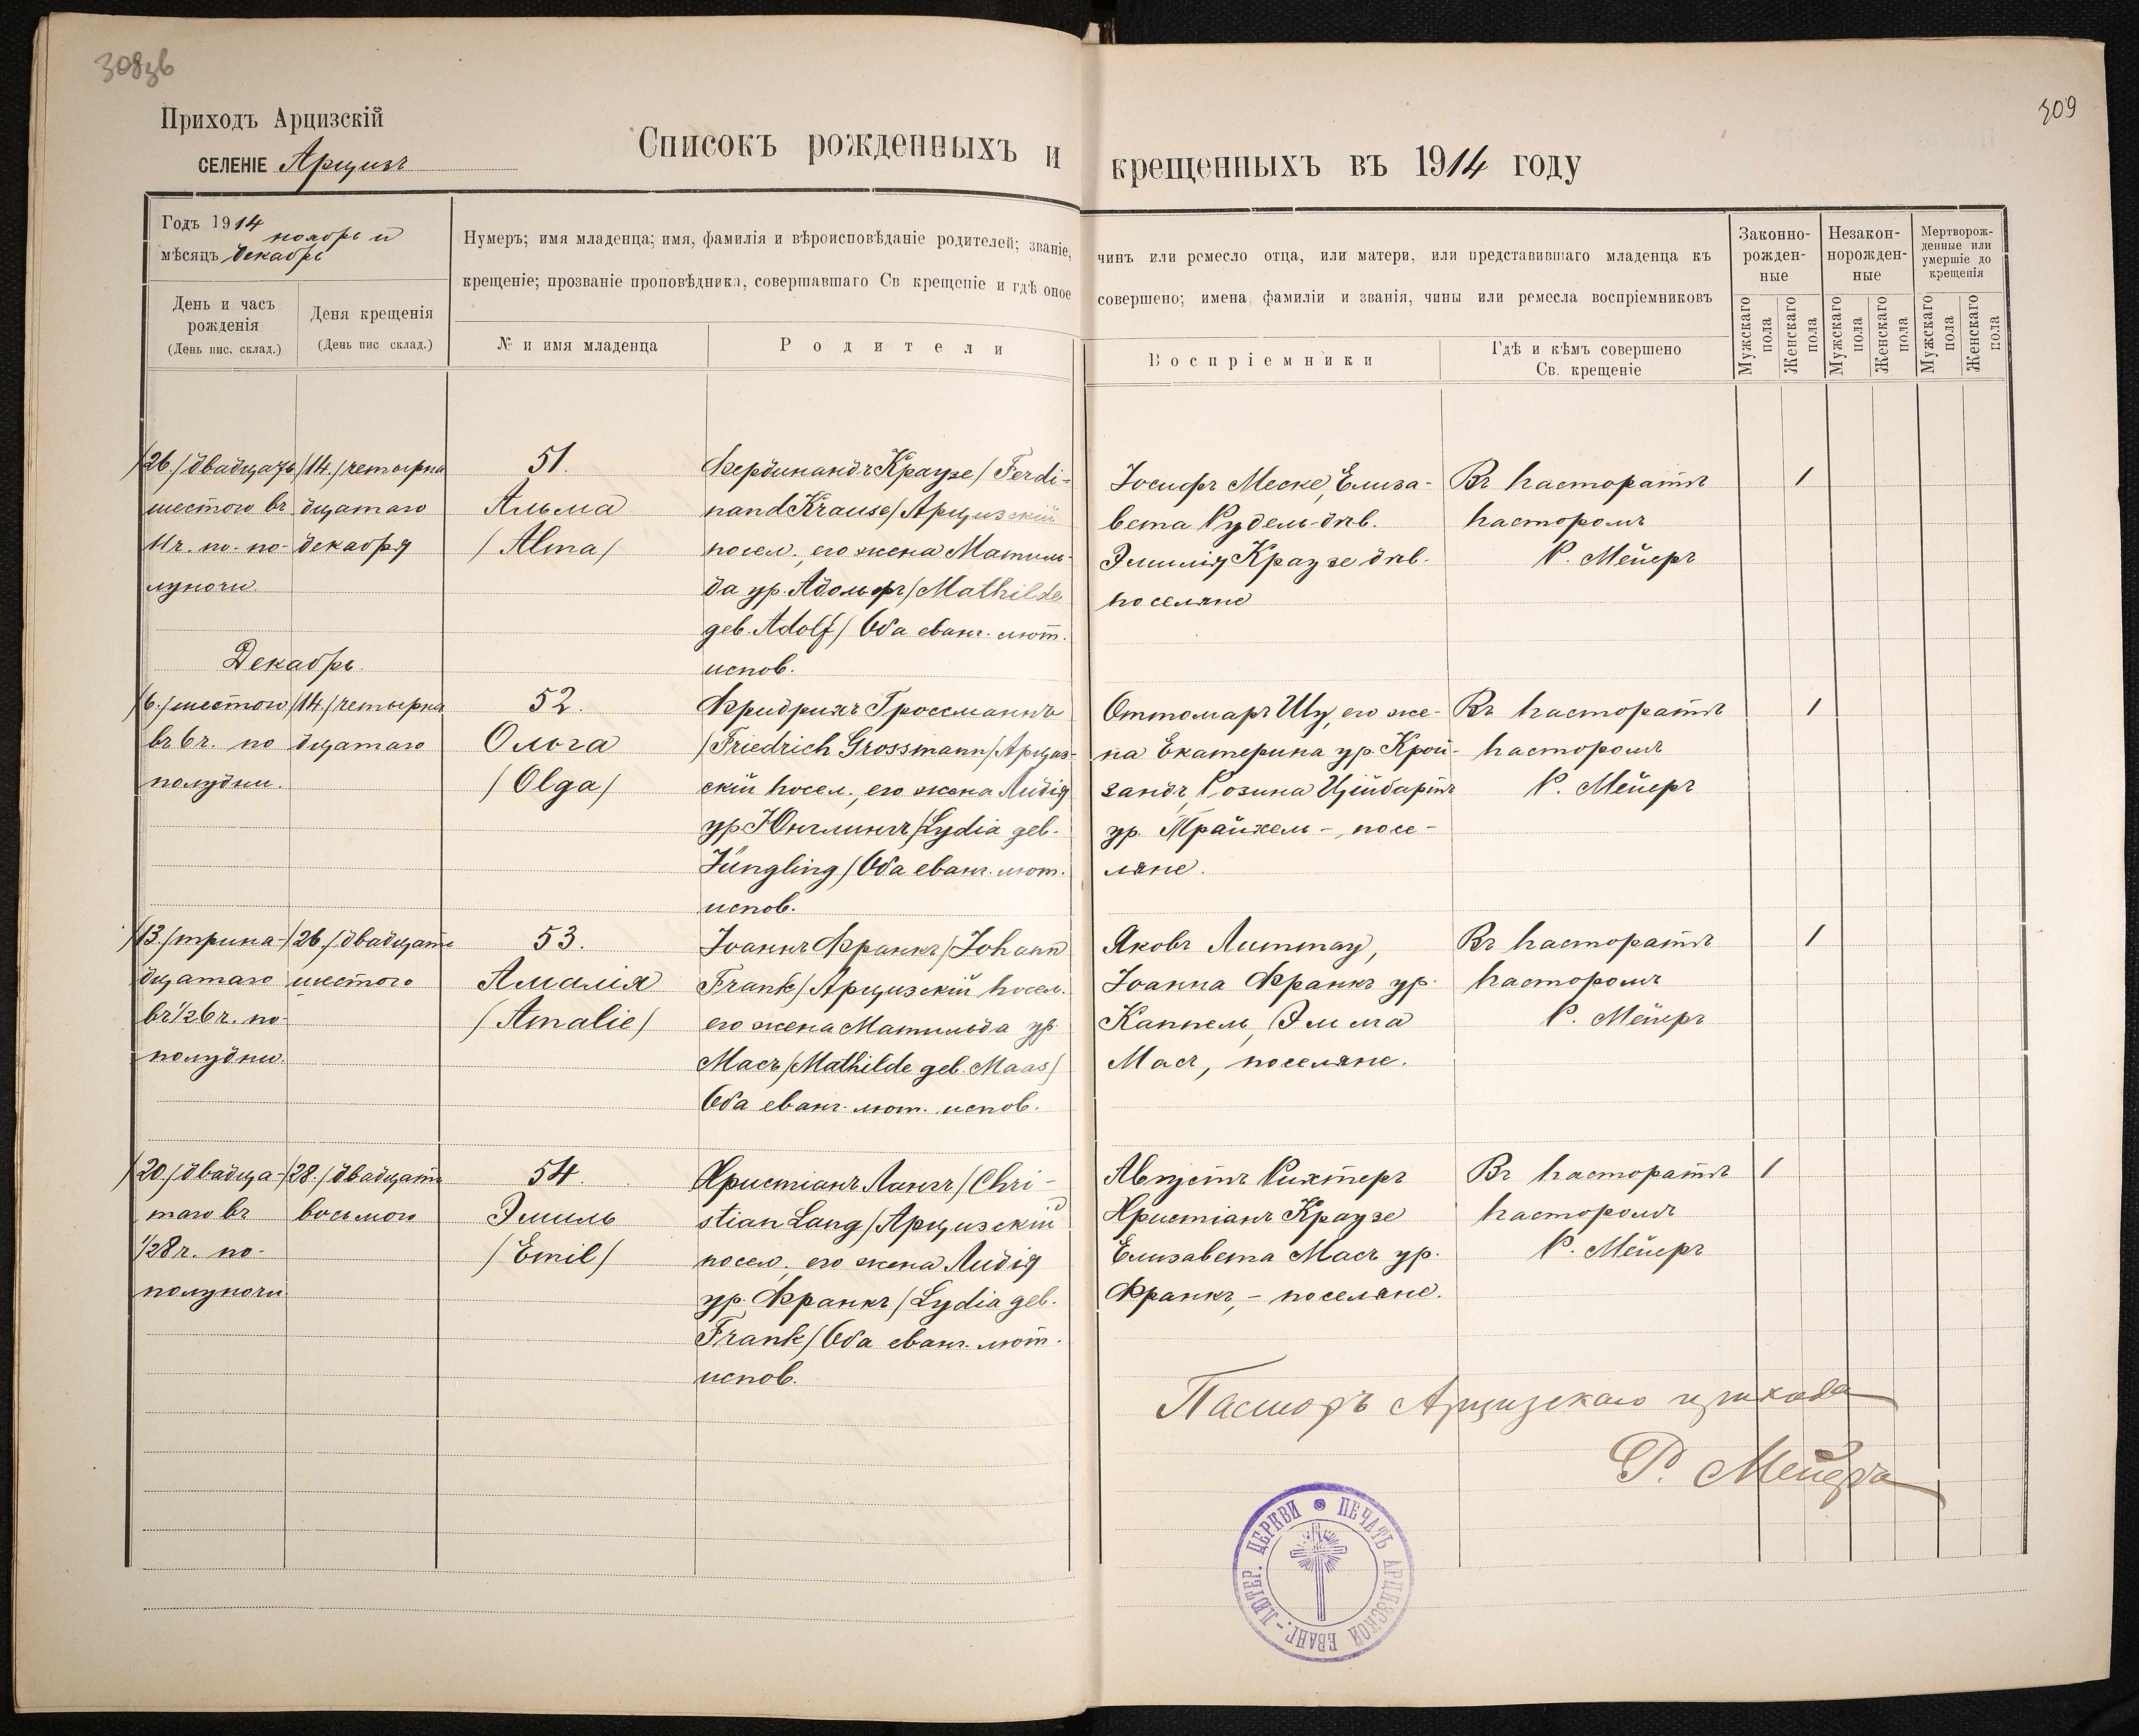 308зв
309
Приходъ Арцизскій
СЕЛЕНІЕ Арцизъ
Списокъ рожденныхъ и крещенныхъ въ 1914 году
Годъ 1914
ноябрь и
мѣсяцъ декабрь
День и часъ
рожденія
(День пис. склад.)
Деня крещенія
(День пис склад.)
Нумеръ; имя младенца; имя, фамилія и вѣроисповѣданіе родителей; званіе, чинъ или ремесло отца, или матери, или представившаго младенца къ
крещеніе; прозваніе проповѣдника, совершавшаго Св крещеніе и гдѣ оное совершено; имена фамиліи и званія, чины или ремесла воспріемниковъ
№ и имя младенца
Родители
Воспріемники
Гдѣ и кѣмъ совершено
Св. крещеніе
Законно-
рожден-
ные
Незакон-
норожден-
ные
Мертворож-
денные или
умершіе до
крещенія
Мужскаго
пола
Женскаго
пола
Мужскаго
пола
Женскаго
пола
Мужскаго
пола
Женскаго
пола
/26./двадцать
шестого въ
11ч. по по-
луночи.
/14./четырна
дцатаго
декабря
51.
Альма
/Alma/
Фердинандъ Краузе/Ferdi-
nand Krause/Арцизскій
посел., его жена Матиль-
да ур. Адольфъ/Mathilde
geb. Adolf/Оба еванг. лют.
испов.
Іосифъ Меске, Елиза-
вета Рудель-двв.
Эмилія Краузе двв.
поселяне
Въ пасторатѣ
пасторомъ
Р. Мейеръ
1
Декабрь.
/6./шестого
въ 6ч. по
полудни.
/14./четырна
дцатаго
52.
Ольга
/Olga/
Фридрихъ Гроссманнъ
/Friedrich Grossmann/Арциз-
скій посел., его жена Лидія
ур. Юнглингъ/Lydia geb.
Jüngling/Оба еванг. лют.
испов.
Оттомаръ Шу, его же-
на Екатерина ур. Крой-
зандъ, Розина Ційбартъ
ур. Трайхель-, посе-
ляне.
Въ пасторатѣ
пасторомъ
Р. Мейеръ
1
/13./трина-
дцатаго
въ 1/2 6ч. по-
полудни.
/26./двадцать
шестого
53.
Амалія
/Amalie/
Іоаннъ Франкъ/Johann
Frank/Арцизскій посел.
его жена Матильда ур
Масъ/Mathilde geb. Maas/
Оба еванг. лют. испов.
Яковъ Литтау,
Іоанна Франкъ ур.
Каппель, Эмма
Масъ, поселяне.
Въ пасторатѣ
пасторомъ
Р. Мейеръ
1
/20./двадца-
таго въ
1/2 8ч. по-
полуночи
/28./двадцать
восьмого
54.
Эмиль
/Emil/
Христіанъ Лангъ/Chri-
stian Lang/Арцизскій
посел. его жена Лидія
ур. Франкъ/Lydia geb.
Frank/Оба еванг. лют.
испов.
Августъ Рихтеръ
Христіанъ Краузе
Елизавета Масъ ур.
Франкъ,- поселяне.
Въ пасторатѣ
пасторомъ
Р. Мейеръ
1
Пасторъ Арцизскаго прихода
Р. Мейеръ
ПЕЧАТЬ АРЦИЗСКОЙ ЕВАНГ.-ЛЮТЕР. ЦЕРКВИ